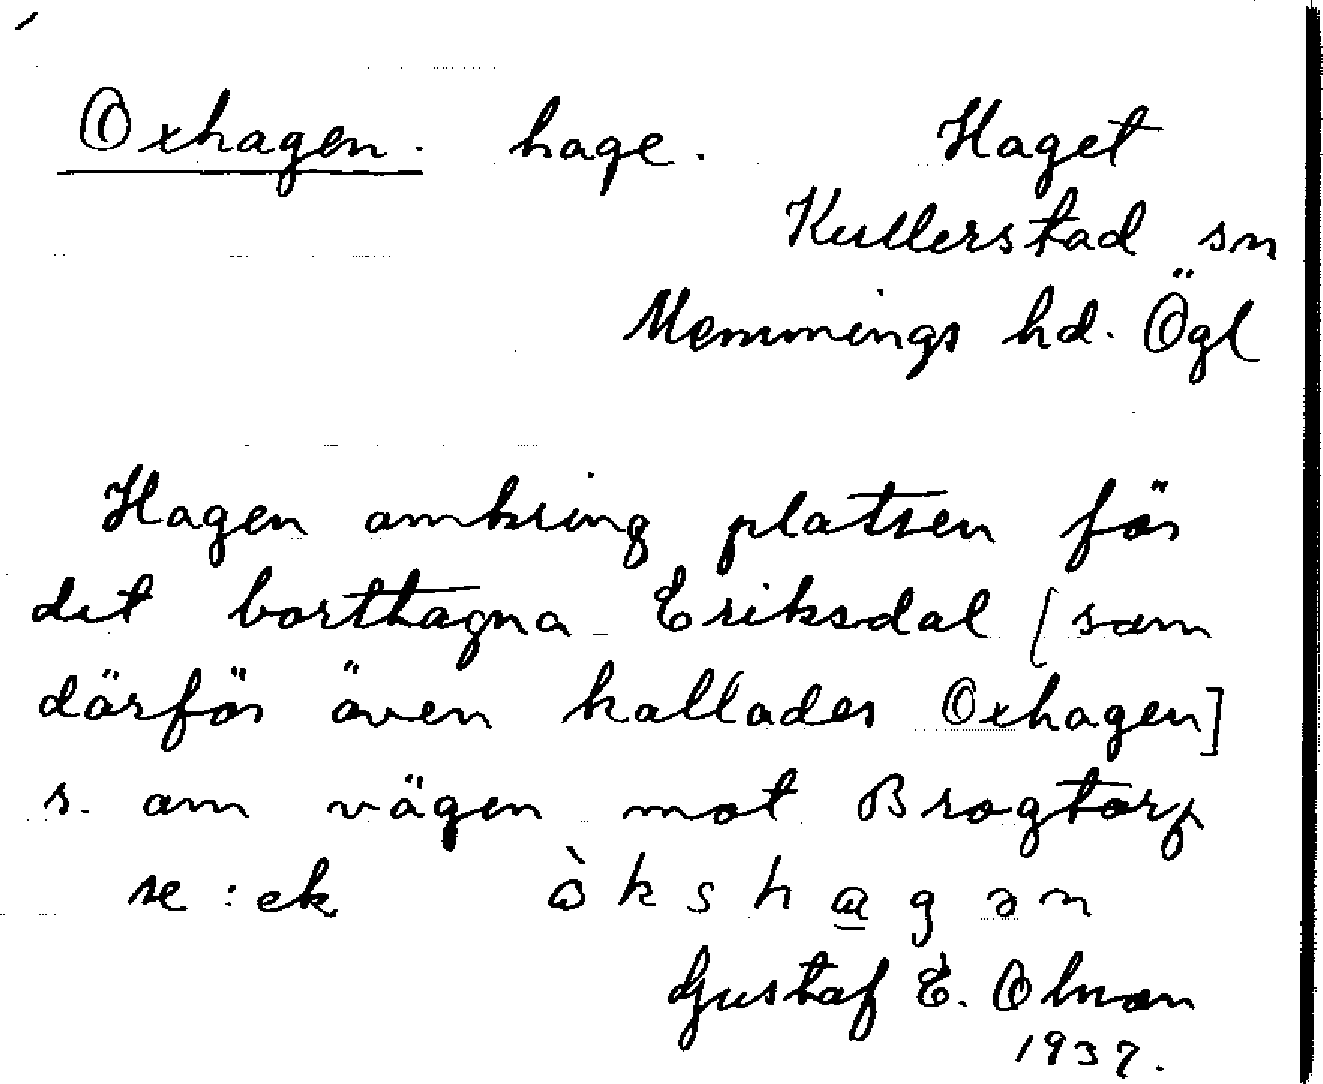 Oxhagen. hage. Haget
Kullerstad sn
Memmings hd. Ögl
Hagen omkring platsen för
det borttagna Eriksdal [som
därför även kallades Oxhagen]
s. om vägen mot Brogtorp
se : ek òkshagən
Gustaf E. Olsson
1937.